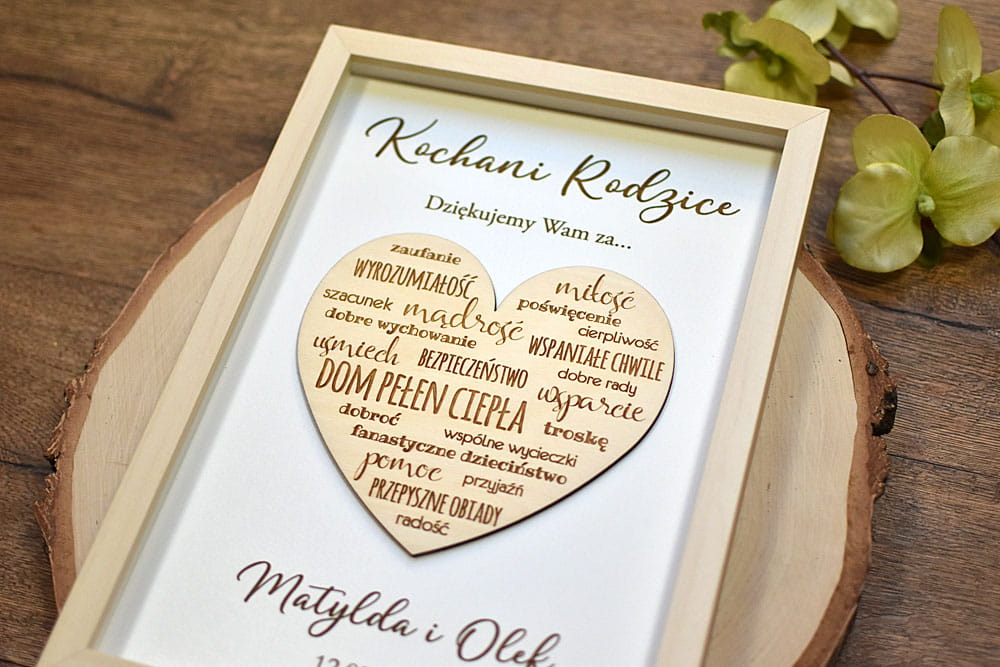 Kochani Rodzice
Dziękujemy Wam za...
zaufanie
WYROZUMIAŁOŚĆ
szacunek mądrość
dobre wychowanie
uśmiech BEZPIECZEŃSTWO
DOM PEŁEN CIEPŁA
miłość
poświęcenie
cierpliwość
WSPANIAŁE CHWILE
dobre rady
wsparcie
troskę
dobroć
wspólne wycieczki
fanastyczne dzieciństwo
pomoc przyjaźń
PRZEPYSZNE OBIADY
radość
Matylda i Olek